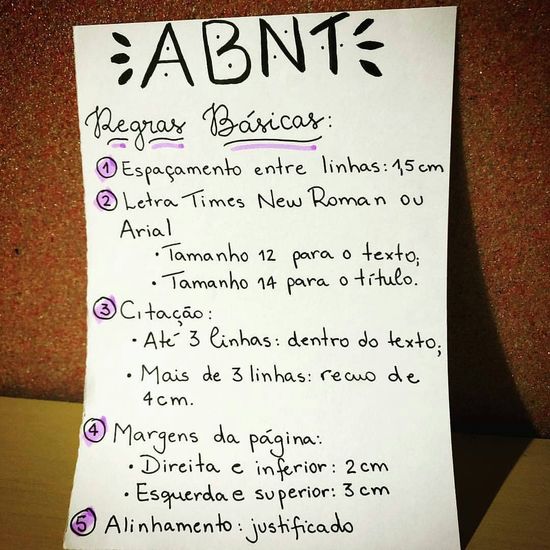 ABNT
Regras Básicas:
1 Espaçamento entre linhas: 1,5 cm
2 Letra Times New Roman ou
Arial
• Tamanho 12 para o texto;
• Tamanho 14 para o título.
3 Citação:
• Até 3 linhas: dentro do texto;
• Mais de 3 linhas: recuo de
4 cm.
4 Margens da página:
• Direita e inferior: 2 cm
• Esquerda e superior: 3 cm
5 Alinhamento: justificado